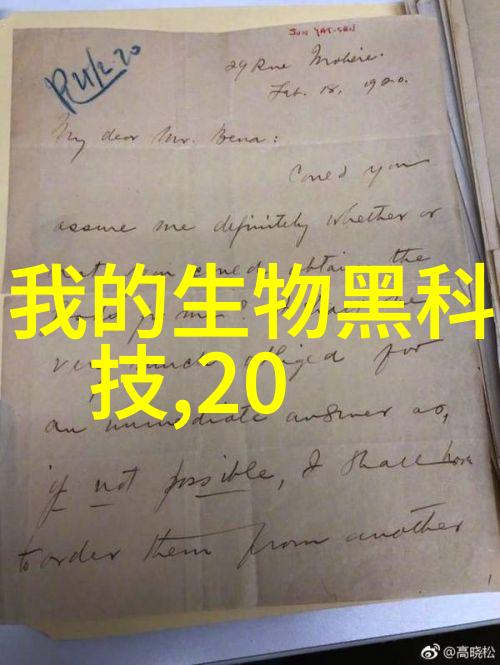 SUN YAT-SEN
R 4/2-20
29 Rue Molière.
Feb. 18, 1920.
My dear Mr. Bena:
Could you
assure me definitely whether or
not you could obtain the
for me? I shall be
very much obliged for
an immediate answer as,
if not possible, I shall have
to order them from another
我的生物黑科
技,20
@高晓松